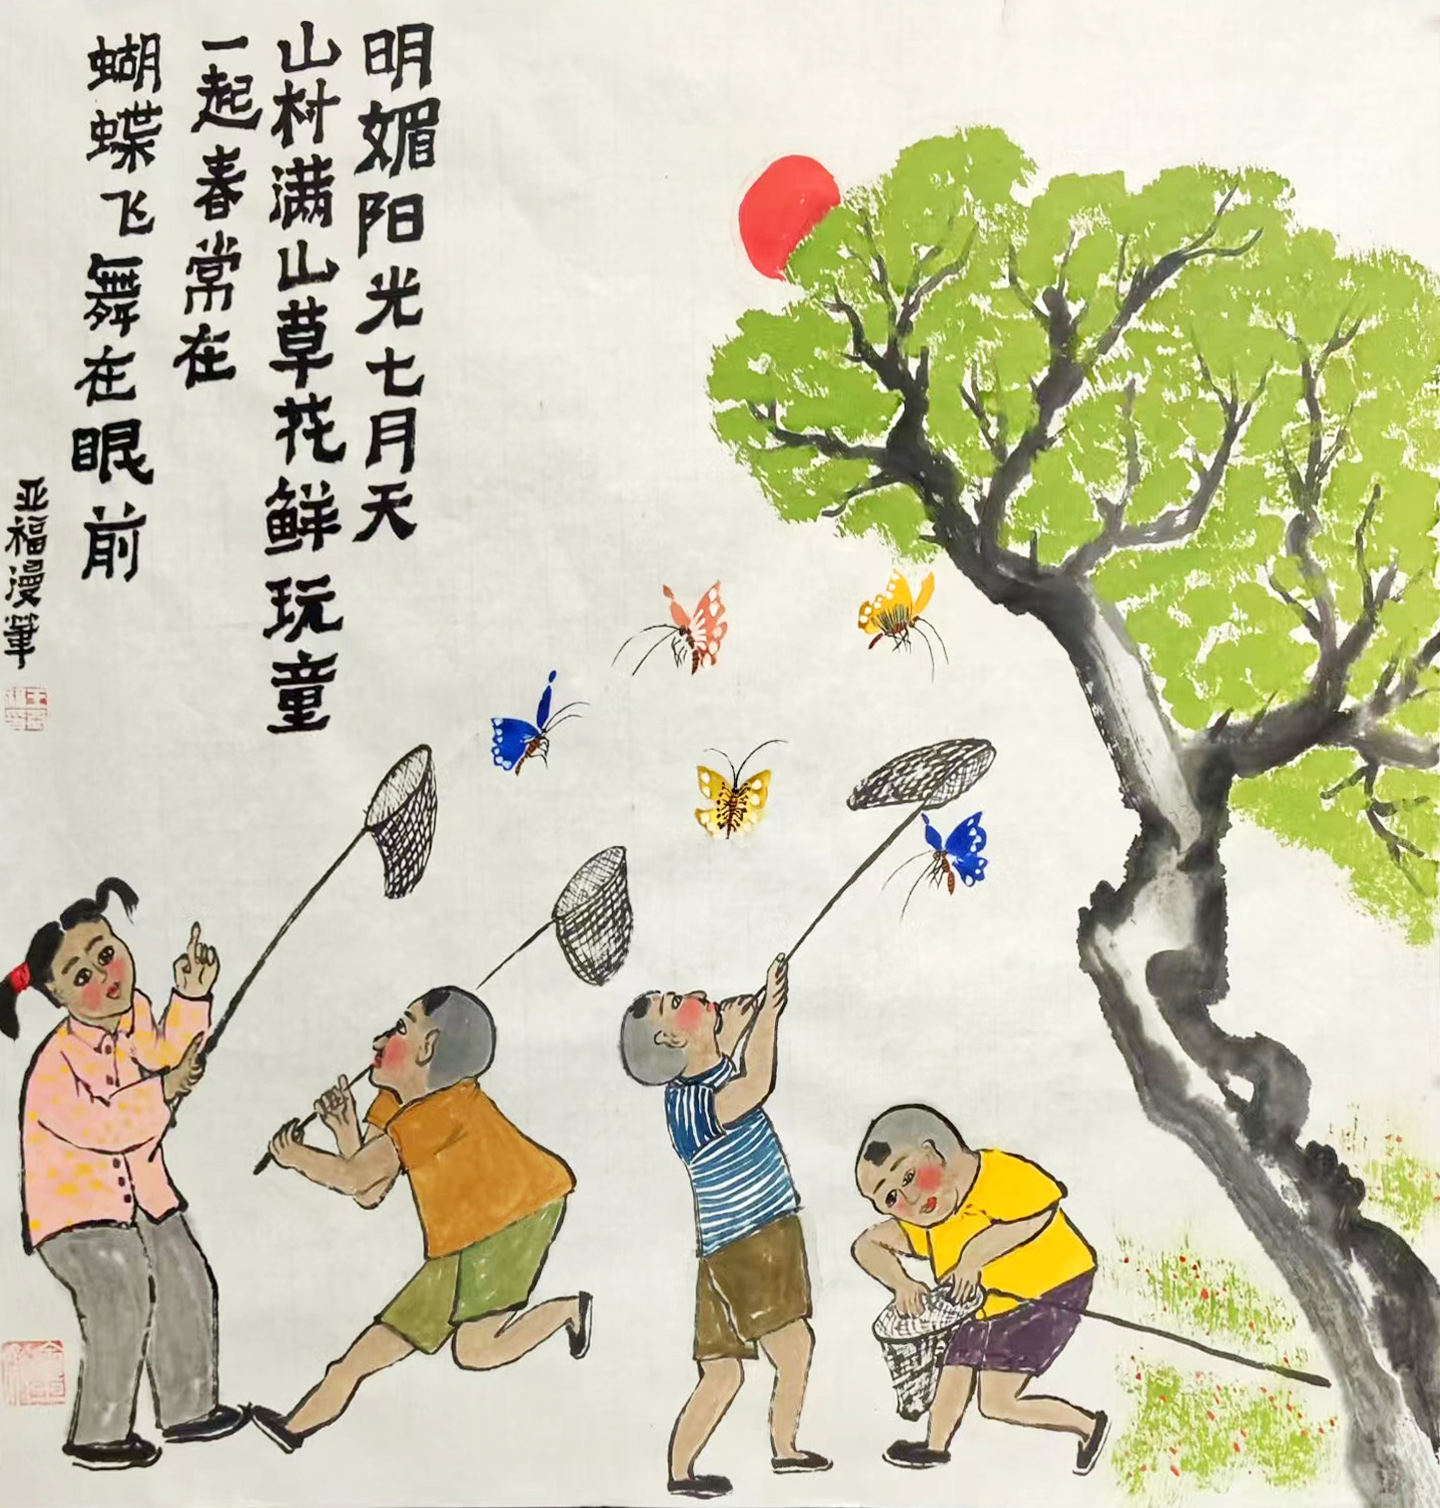 明媚阳光七月天
山村满山草花鲜玩童
一起春常在
蝴蝶飞舞在眼前
亚福漫笔